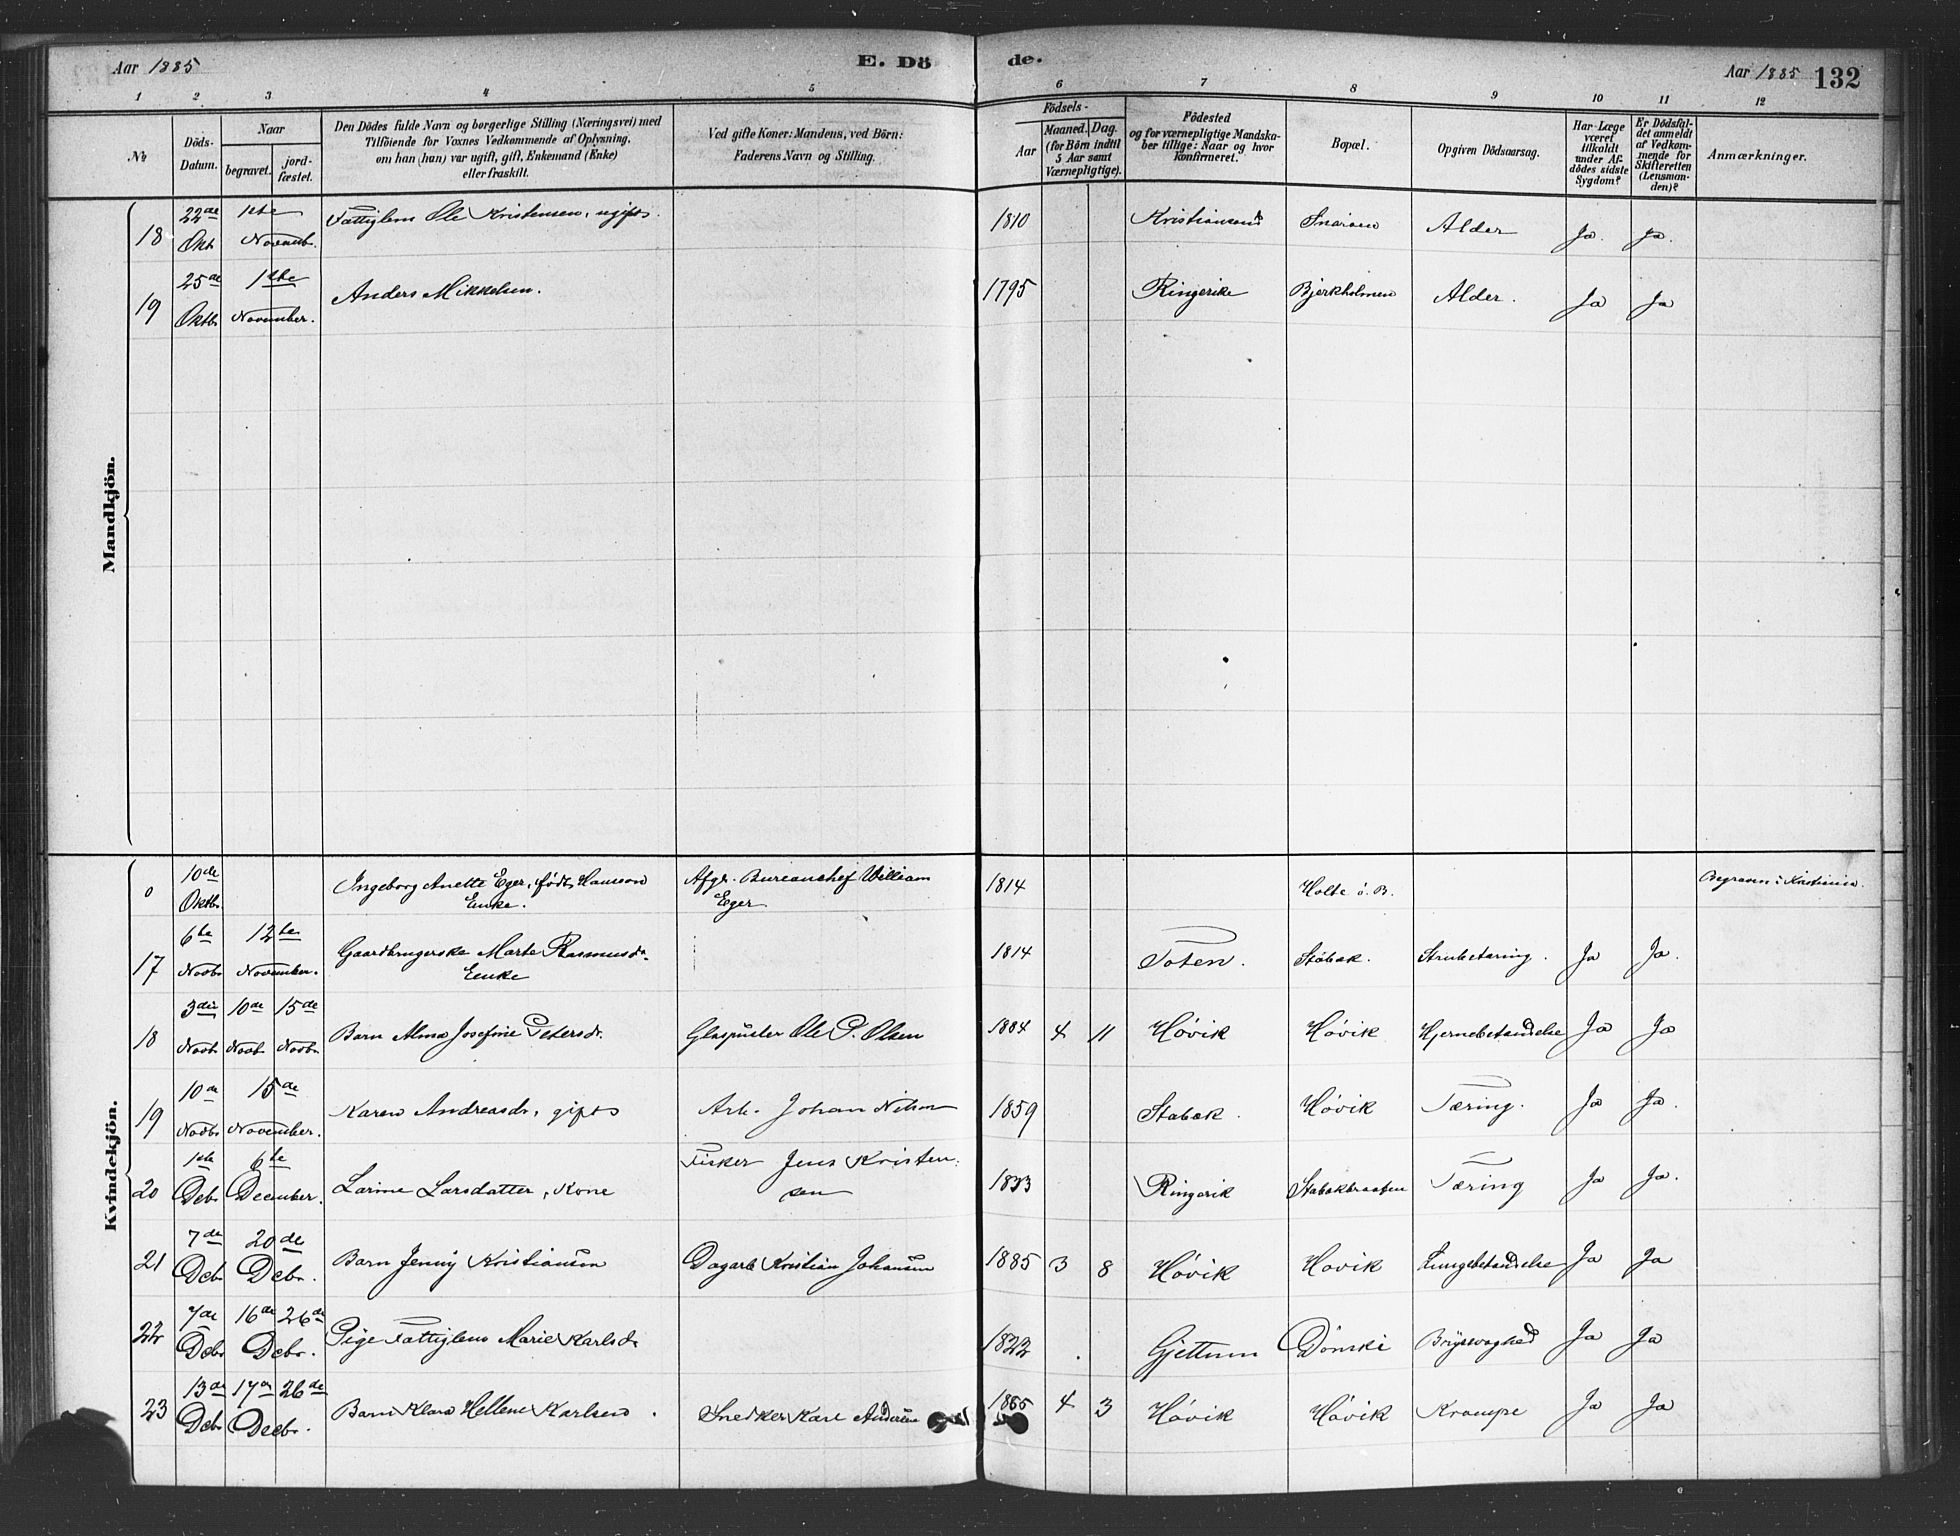 Aar 1885
E. Dö
de.
Aar 1885 132
1 2 3 4 5 6 7 8 9 10 11 12
№
Döds-Datum.
Naar
begravet.
jord-fæstet.
Den Dödes fulde Navn og borgerlige Stilling (Næringsvei) med
Tilföiende for Voxnes Vedkommende af Oplysning,
om han (hun) var ugift, gift, Enkemand (Enke)
eller fraskilt.
Ved gifte Koner: Mandens, ved Börn:
Faderens Navn og Stilling.
Födsels-
Aar
Maaned. Dag.
(for Börn indtil
5 Aar samt
Værnepligtige).
Födested
og for værnepligtige Mandska-
ber tillige: Naar og hvor
konfirmeret.
Bopæl.
Opgiven Dödsaarsag.
Har Læge
været
tilkaldt
under Af-
dödes sidste
Sygdom?
Er Dödsfal-
det anmeldt
af Vedkom-
mende for
Skifteretten
(Lensman-
den)?
Anmærkninger.
Mandkjön.
18 22de Okt. 1ste Novemb. Fattiglem Ole Kristensen, ugift. 1810 Kristiansand Snaröen Alder Ja. Ja.
19 25de Oktb. 1ste November. Anders Mikkelsen. 1795 Ringerike Bjerkholmen Alder. Ja Ja
Kvindekjön.
0 10de Oktb. Ingeborg Anette Eger, födt Hansson
Enke. Afg. Bureauchef William
Eger 1814 Holte ö. B. Begraven i Kristiania.
17 6te Novbr. 12te November. Gaardbrugerske Marte Rasmusdr.
Enke 1814 Toten. Stabak. Strubetæring. Ja Ja.
18 3die Novbr. 10de Novbr. 15de Novbr. Barn Alma Josefine Petersdr. Glaspuster Ole P. Olsen 1884 4 11 Hövik Hövik Hjernebetændelse Ja Ja
19 10de Novbr. 15de November. Karen Andreasdr., gift Arb. Johan Nilsen 1859 Stabak. Hövik Tæring. Ja Ja.
20 1ste Debr. 6te December. Larine Larsdatter, Kone Fisker Jens Kristen-
sen 1833 Ringerik Stabakbraaten Tæring Ja Ja.
21 7de Debr. 20de Debr. Barn Jenny Kristiansen Dagarb. Kristian Johansen 1885 3 8 Hövik Hövik Lungebetændelse Ja Ja
22 7de Debr. 16de 26de Debr. Pige Fattiglem Marie Karlsdr. 1822 Gjettum Dönski Brystsvaghed Ja Ja
23 13de Debr. 17de 26de Debr. Barn Klara Hellene Karlsen. Snedker Karl Andersen 1885 4 3 Hövik Hövik Krampe Ja Ja